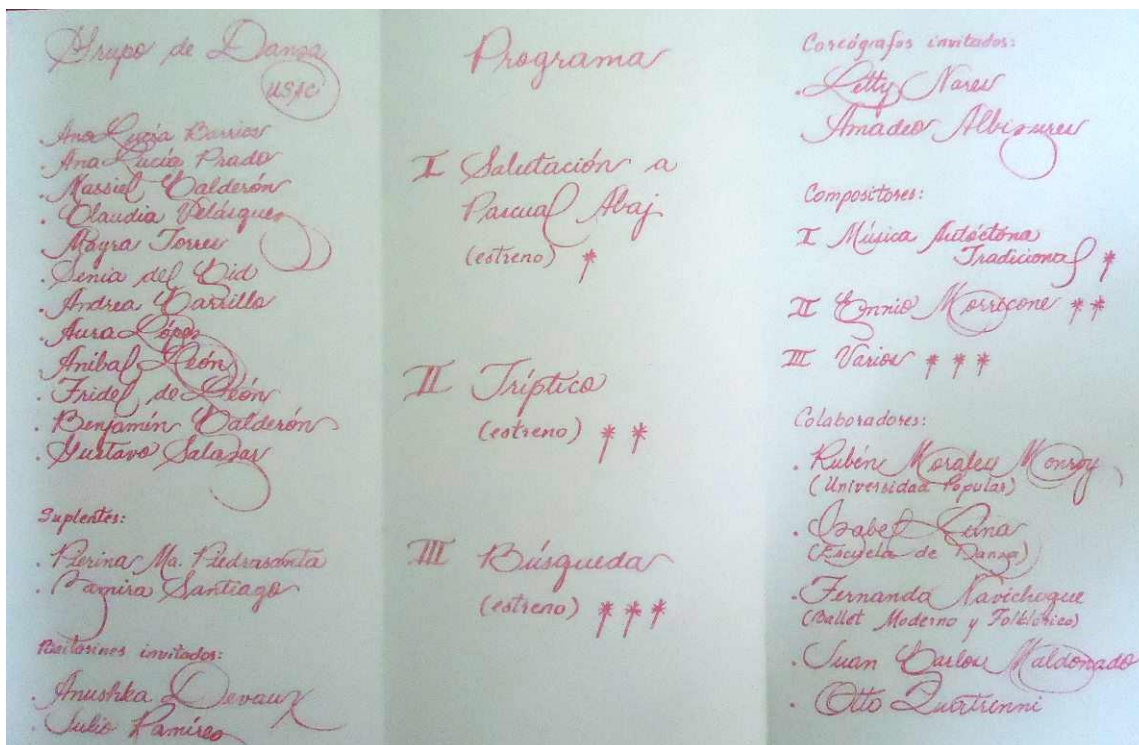 Grupo de Danza
USAC
. Ana Lucía Barrios
. Ana Lucía Prado
. Massiel Calderón
. Claudia Velásquez
. Mayra Torres
. Senia del Cid
. Andrea Carrillo
. Aura López
. Aníbal León
. Fridel de León
. Benjamín Calderón
. Gustavo Salazar
Suplentes:
. Pierina Ma. Piedrasanta
. Samira Santiago
Bailarines invitados:
. Anushka Devaux
. Julio Ramírez
Programa
I Salutación a
Pascual Abaj
(estreno) *
II Tríptico
(estreno) * *
III Búsqueda
(estreno) * * *
Coreógrafos invitados:
. Letty Nares
Amadeo Albizures
Compositores:
I Música Autóctona
Tradicional *
II Ennio Morricone * *
III Varios * * *
Colaboradores:
. Rubén Morales Monroy
(Universidad Popular)
. Izabel
(Escuela de Danza)
. Fernando Navichoque
(Ballet Moderno y Folklórico)
. Juan Carlos Maldonado
. Otto